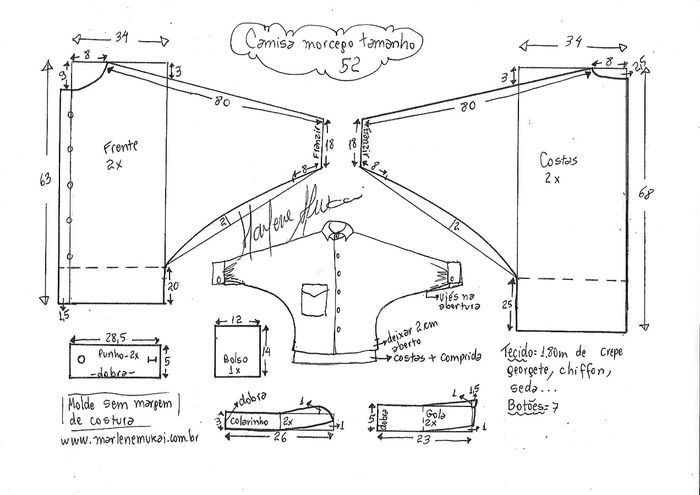 Camisa morcego tamanho
52
34
8
9
3
80
Frente
2x
Franzir
18
8
2
63
20
1,5
34
8
2,5
3
80
Costas
2x
franzir
18
8
2
68
25
Marlene Mukai
viés na
abertura
deixar 2 cm
aberto
costas + comprida
28,5
Punho-2x
-dobra-
5
12
Bolso
1x
14
Molde sem margem
de costura
www.marlenemukai.com.br
dobra
3
Colarinho
2x
1
1
26
5
dobra
Gola
2x
1
1,5
1
23
Tecido= 1,80m de crepe
georgete, chiffon,
seda...
Botões= 7